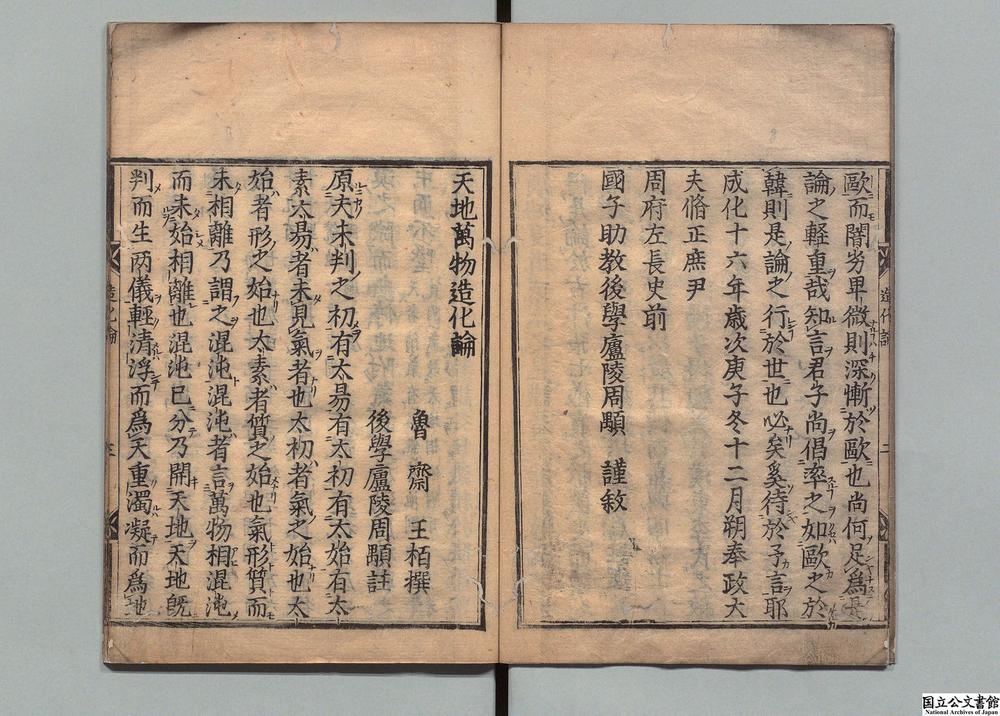 歐而闇劣卑微則深慚於歐也尚何足爲長
論之軽重哉知言君子尚倡率之如歐之於
韓則是論之行於世也必矣奚待於予言耶
成化十六年歳次庚子冬十二月朔奉政大
夫脩正庶尹
周府左長史前
國子助教後學廬陵周顒 謹敘
天地萬物造化論
魯齋 王柏撰
後學廬陵周顒註
原夫未判之初有太易有太初有太始有太
素太易者未見氣者也太初者氣之始也太
始者形之始也太素者質之始也氣形質而
未相離乃謂之混沌混沌者言萬物相混沌
而未始相離也混沌已分乃開天地天地旣
判而生两儀輕清浮而爲天重濁凝而爲地
造化論 二
造化論 三
国立公文書館
National Archives of Japan